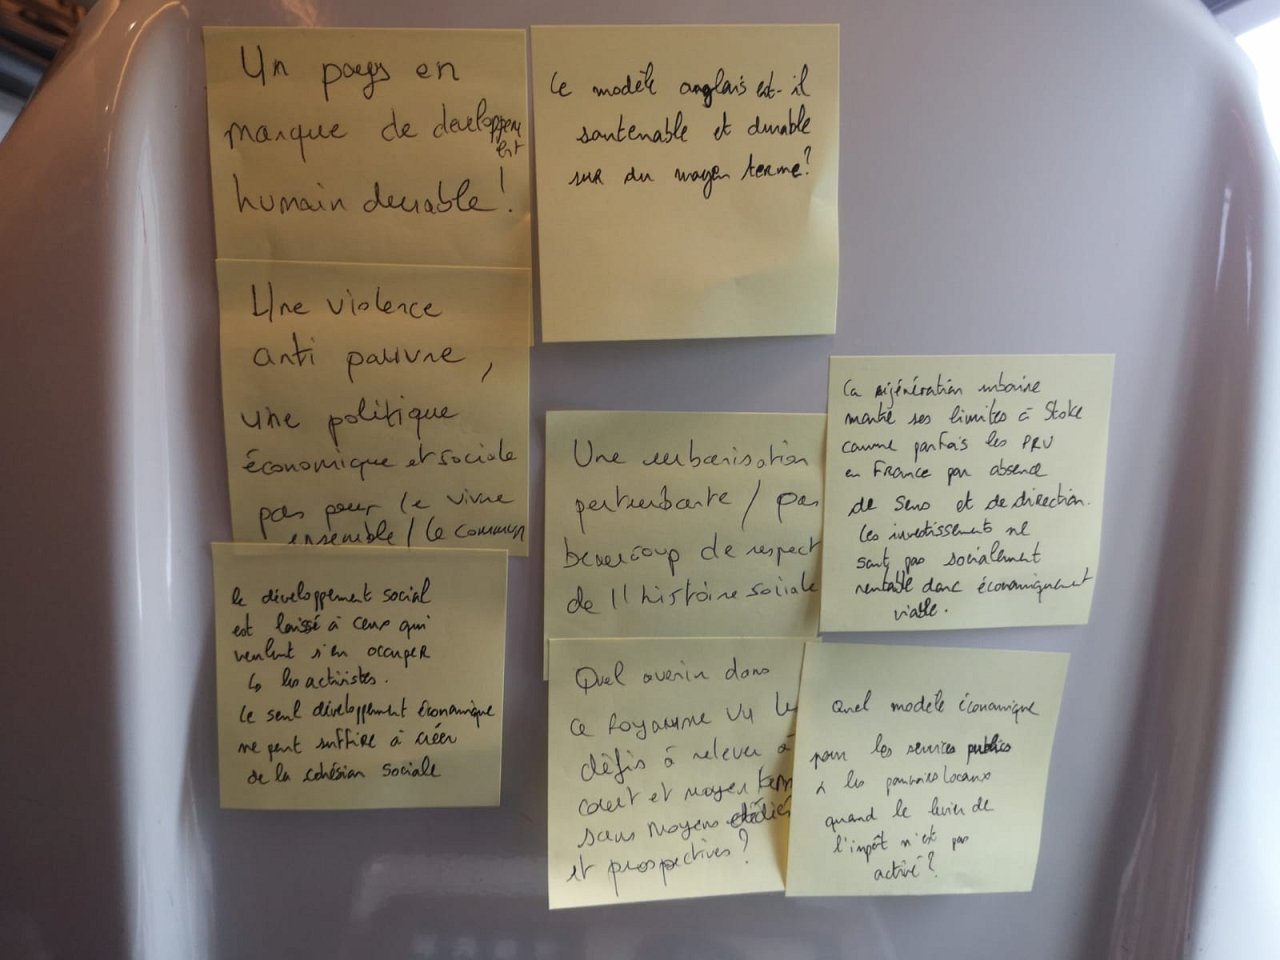 Un pays en
manque de developpem
ent
humain durable !
Le modèle anglais est-il
soutenable et durable
sur du moyen terme ?
Une violence
anti pauvre,
une politique
économique et sociale
pas pour le vivre
ensemble / le commun
Une urbanisation
perturbante / pas
beaucoup de respect
de l'histoire sociale
La régénération urbaine
montre ses limites à Stoke
comme parfois les PRU
en France par absence
de sens et de direction.
Les investissements ne
sont pas socialement
rentable donc économiquement
viable.
le développement social
est laissé à ceux qui
veulent s'en occuper
↳ les activistes.
Le seul développement économique
ne peut suffire à créer
de la cohésion sociale
Quel avenir dans
ce Royaume vu les
défis à relever à
court et moyen term
sans moyens dédiés
et prospectives ?
Quel modèle économique
pour les services publics
& les pouvoirs locaux
quand le levier de
l'impôt n'est pas
activé ?